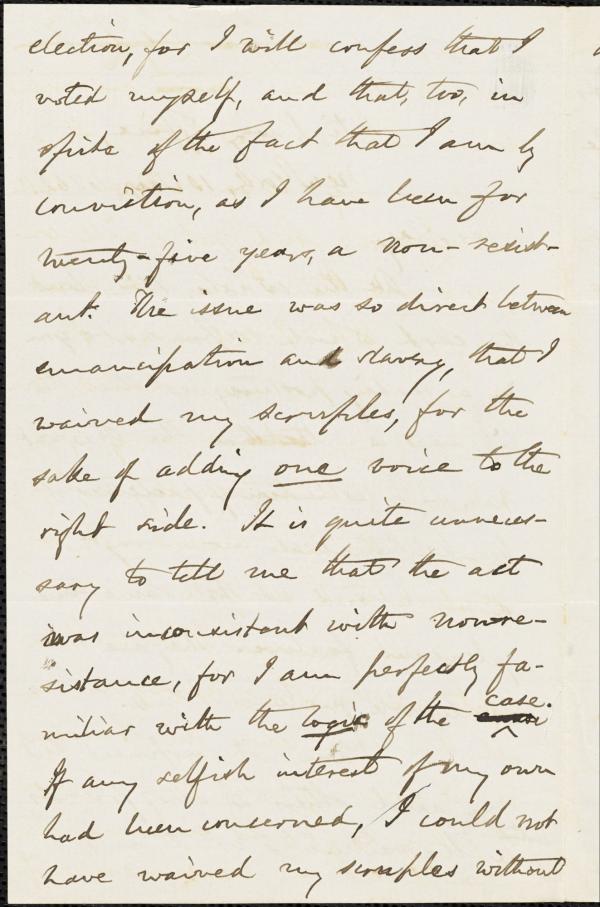 election, for I will confess that I
voted myself, and that, too, in
spite of the fact that I am by
conviction, as I have been for
twenty-five years, a non-resist-
ant. The issue was so direct between
emancipation and slavery, that I
waived my scruples, for the
sake of adding one voice to the
right side. It is quite unneces-
sary to tell me that the act
was inconsistent with non-re-
sistance, for I am perfectly fa-
miliar with the logic of the case.
If any selfish interest of my own
had been concerned, I could not
have waived my scruples without